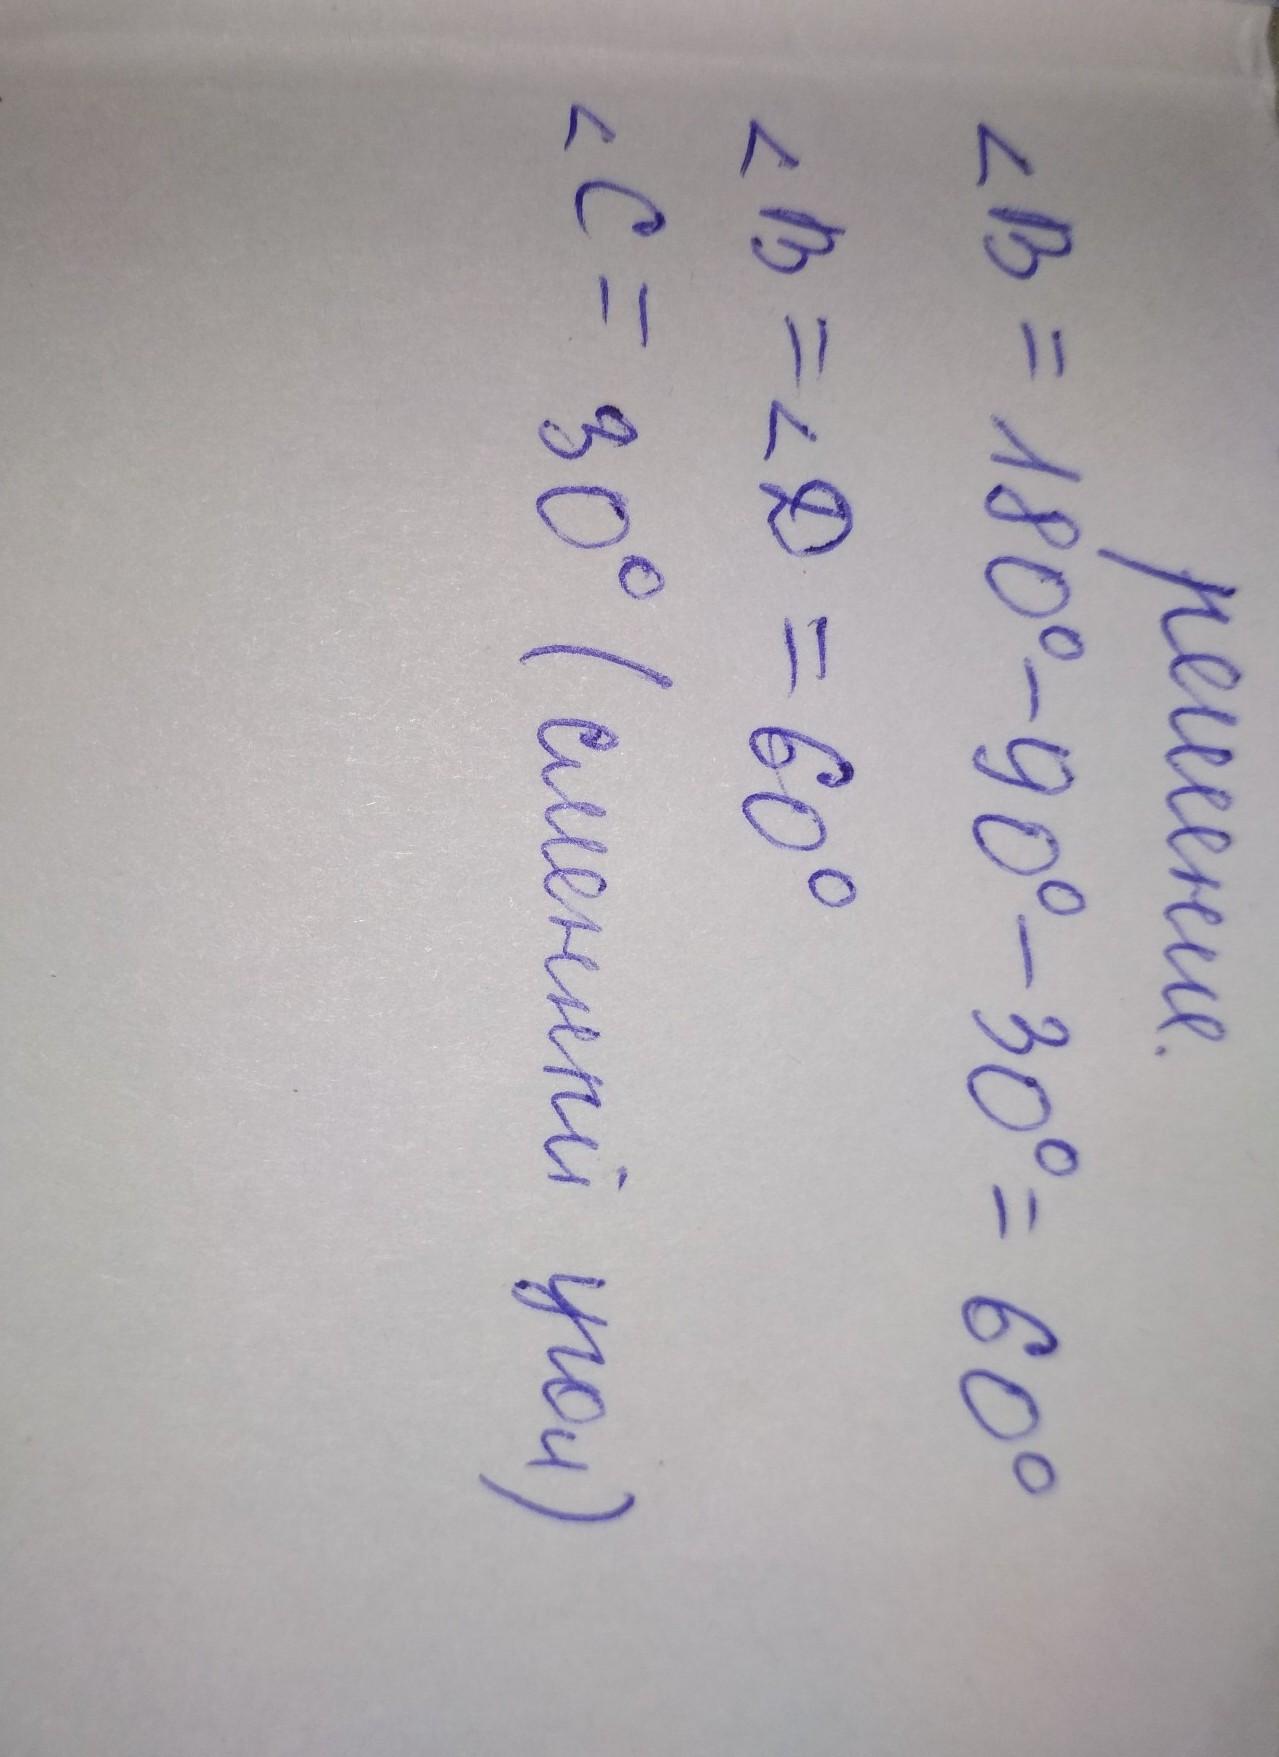 решение.
∠B = 180° - 90° - 30° = 60°
∠B = ∠D = 60°
∠C = 30° (сменний угол)